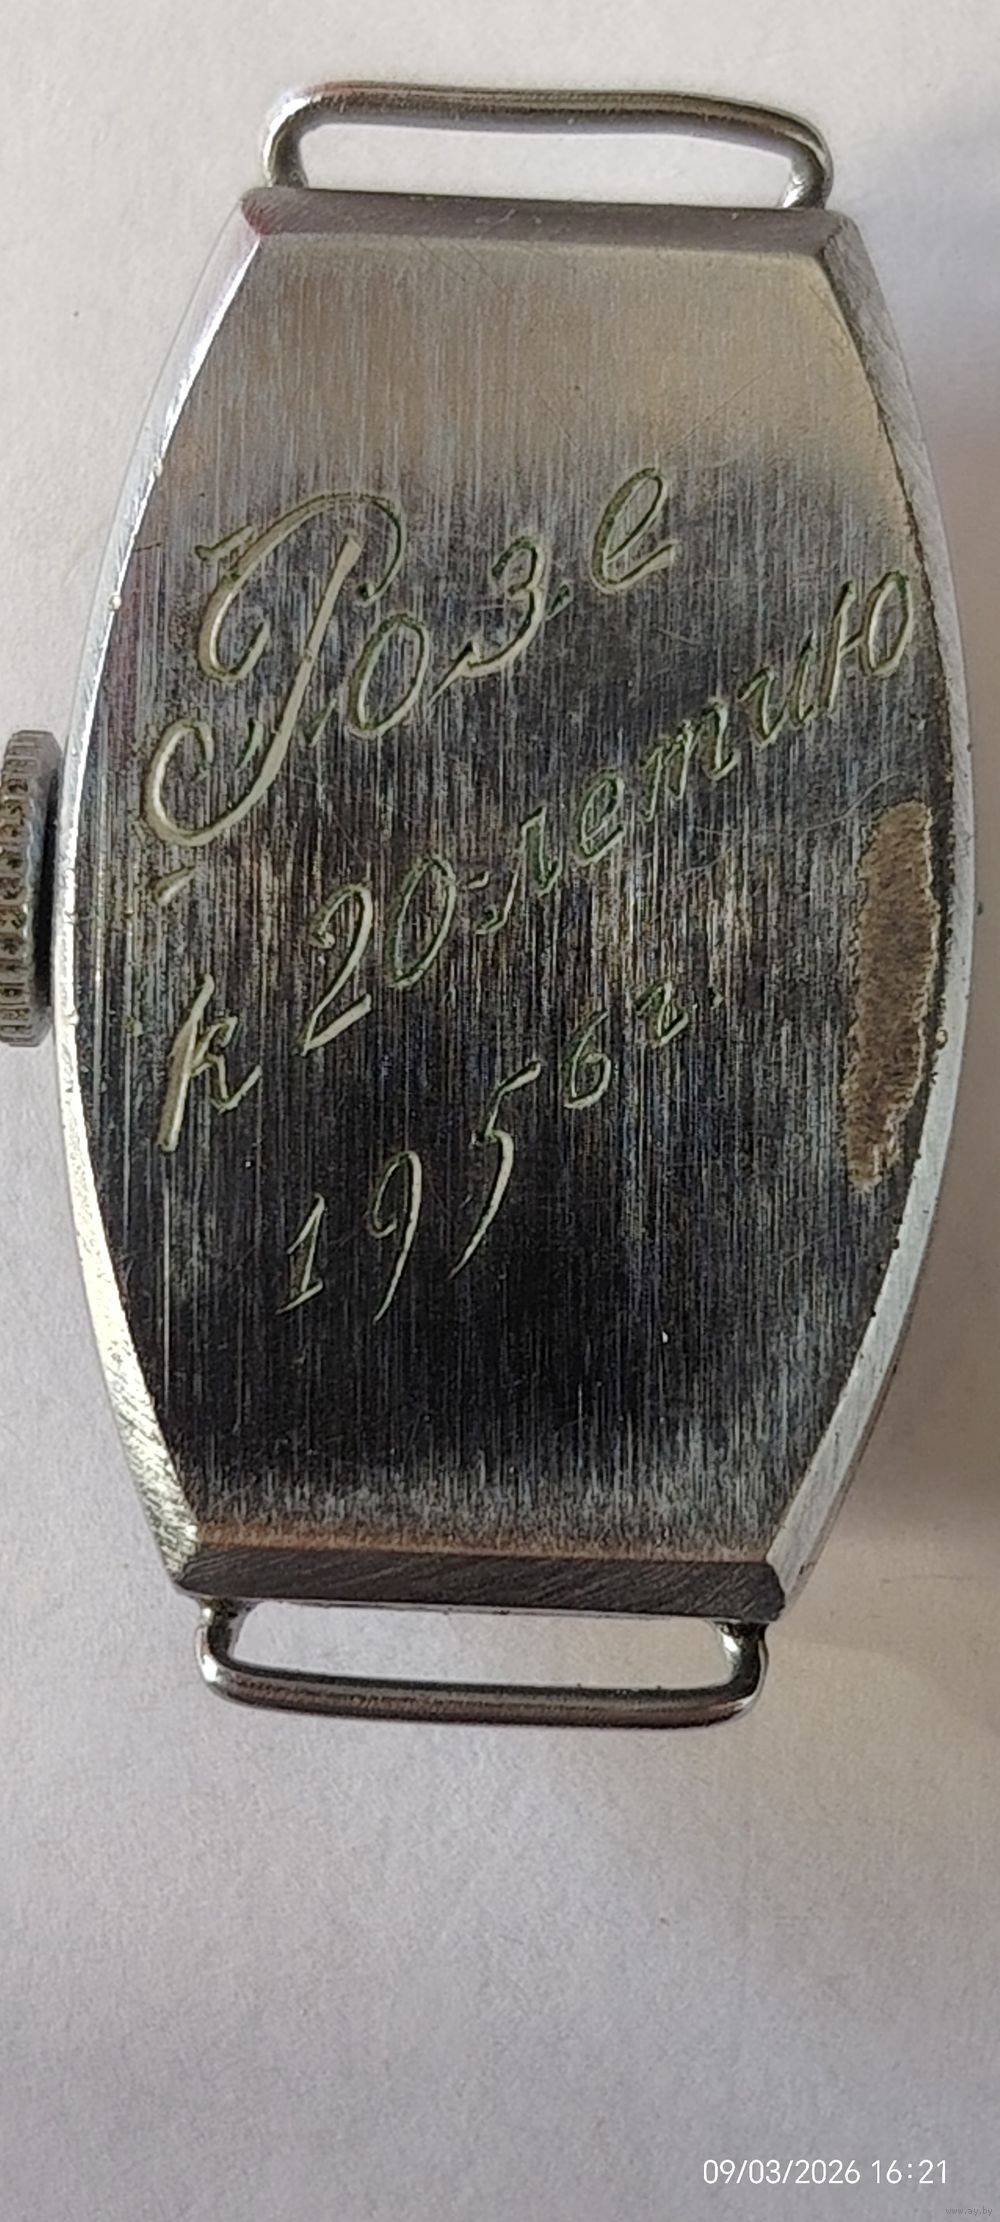 Розе
к 20-летию
1956 г.
09/03/2026 16:21
www.ay.by